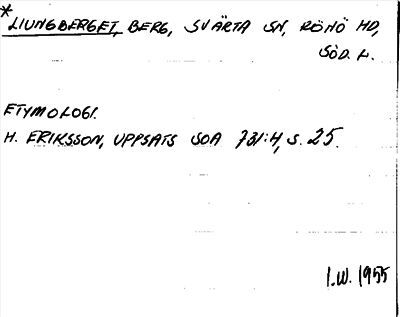 *
LIUNGBERGET, BERG, SVÄRTA SN, RÖNÖ HD,
SÖD. L.
ETYMOLOGI.
H. ERIKSSON, UPPSATS SOA 731:4, S. 25.
I.W. 1955